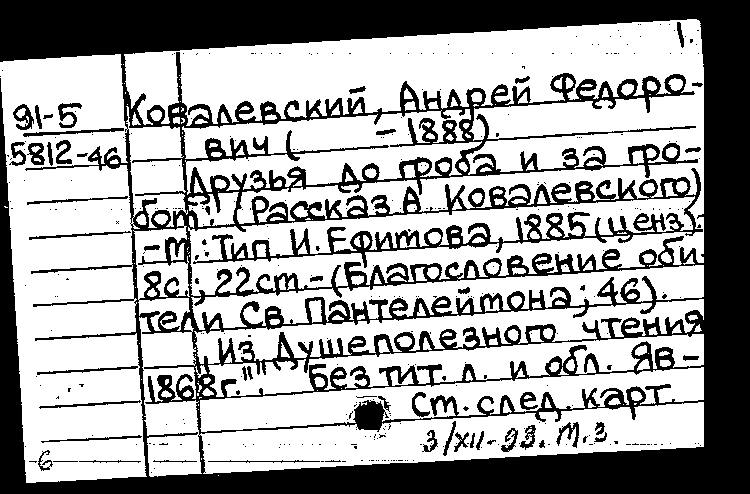 1.
91-5 Ковалевский, Андрей Федоро-
5812-46 вич ( - 1888).
Друзья до гроба и за гро-
бом: (Рассказ А. Ковалевского)
.-М.: Тип. И. Ефимова, 1885 (ценз).-
8с.; 22см.-(Благословение оби-
тели Св. Пантелеймона; 46).
"Из Душеполезного чтения
1868г.". Без тит. л. и обл. Яв-
См. след. карт.
3/XII-93. М.З.
6